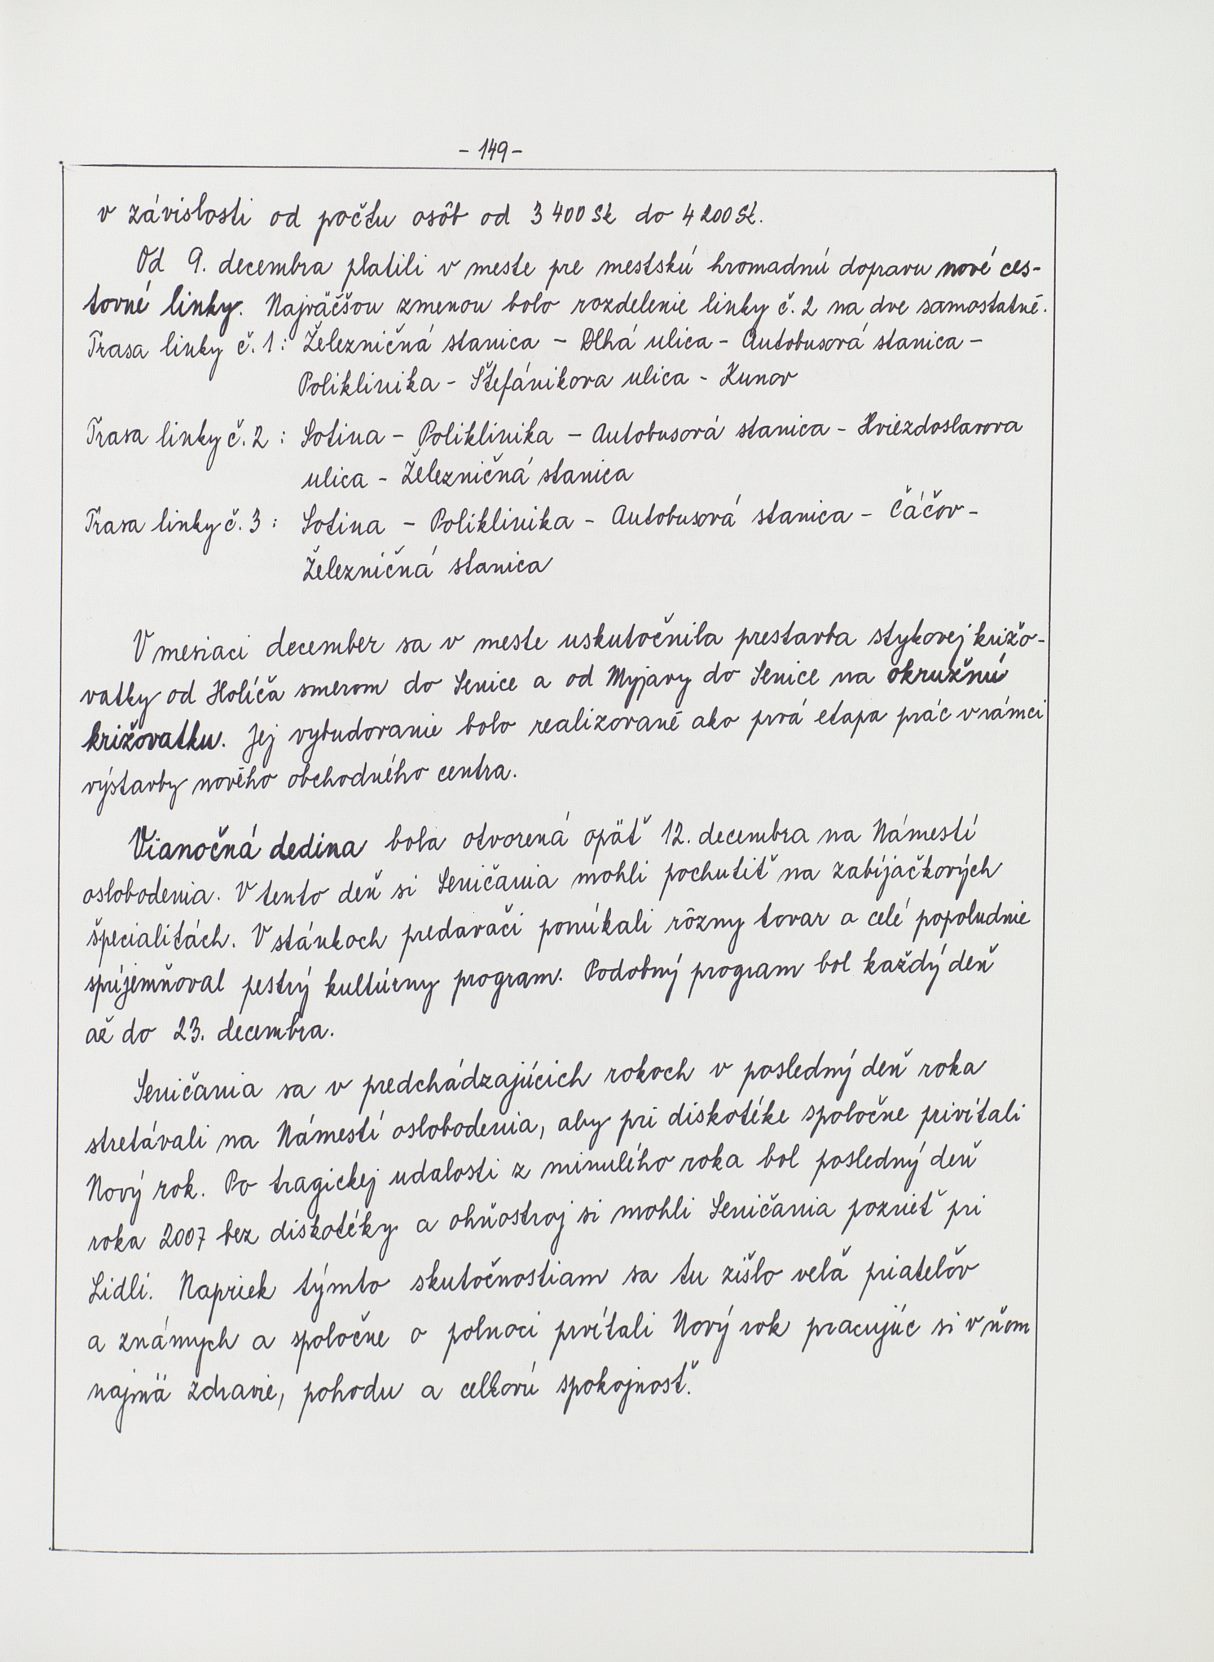 - 149 -
v závislosti od počtu osôb od 3 400 Sk do 4 200 Sk.
Od 9. decembra platili v meste pre mestskú hromadnú dopravu nové ces-
tovné linky. Najväčšou zmenou bolo rozdelenie linky č. 2 na dve samostatné.
Trasa linky č. 1 : Železničná stanica - Dlhá ulica - Autobusová stanica -
Poliklinika - Štefánikova ulica - Kunov
Trasa linky č. 2 : Sotina - Poliklinika - Autobusová stanica - Hviezdoslavova
ulica - Železničná stanica
Trasa linky č. 3 : Sotina - Poliklinika - Autobusová stanica - Čáčov -
Železničná stanica
V mesiaci december sa v meste uskutočnila prestavba stykovej križo-
vatky od Holíča smerom do Senice a od Myjavy do Senice na okružnú
križovatku. Jej vybudovanie bolo realizované ako prvá etapa prác v rámci
výstavby nového obchodného centra.
Vianočná dedina bola otvorená opäť 12. decembra na Námestí
oslobodenia. V tento deň si Seničania mohli pochutiť na zabíjačkových
špecialitách. V stánkoch predavači ponúkali rôzny tovar a celé popoludnie
spríjemňoval pestrý kultúrny program. Podobný program bol každý deň
až do 23. decembra.
Seničania sa v predchádzajúcich rokoch v posledný deň roka
stretávali na Námestí oslobodenia, aby pri diskotéke spoločne privítali
Nový rok. Po tragickej udalosti z minulého roka bol posledný deň
roka 2007 bez diskotéky a ohňostroj si mohli Seničania pozrieť pri
Lidli. Napriek týmto skutočnostiam sa tu zišlo veľa priateľov
a známych a spoločne o polnoci prvítali Nový rok pracujúc si v ňom
najmä zdravie, pohodu a celkovú spokojnosť.